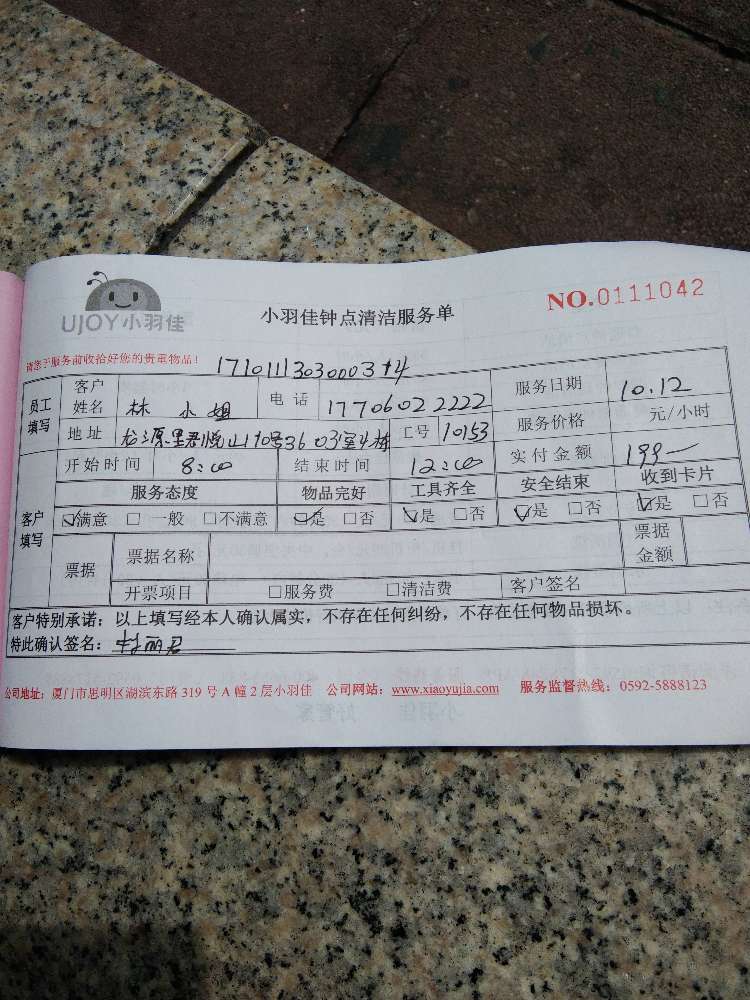 UJOY小羽佳
小羽佳钟点清洁服务单
NO.0111042
请您于服务前收拾好您的贵重物品！
员工填写 客户姓名 林 小姐 电话 17706022222 服务日期 10.12
地址 君悦山110号3603室 工号 10153 服务价格 元/小时
客户填写 开始时间 8:00 结束时间 12:00 实付金额 199
服务态度 物品完好 工具齐全 安全结束 收到卡片
☑满意 □一般 □不满意 ☑是 □否 ☑是 □否 ☑是 □否 ☑是 □否
票据 票据名称 票据金额
开票项目 □服务费 □清洁费 客户签名
客户特别承诺：以上填写经本人确认属实，不存在任何纠纷，不存在任何物品损坏。
特此确认签名：丽君
公司地址：厦门市思明区湖滨东路 319 号 A 幢 2 层小羽佳 公司网站：www.xiaoyujia.com 服务监督热线：0592-5888123